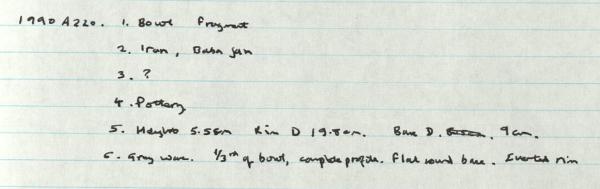 1990 A220. 1. Bowl fragment
2. Iran, Baba Jan
3. ?
4. Pottery
5. Height 5.5cm Rim D 19.5cm. Base D. 9cm.
6. Grey ware. 1/3rd of bowl, complete profile. Flat round base. Everted rim